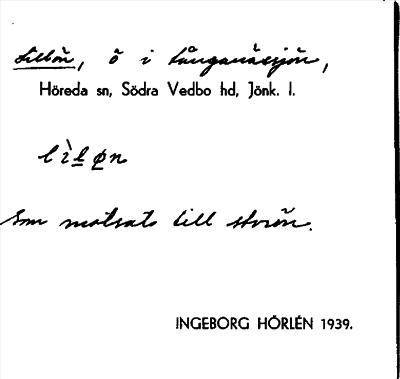 Lillön, ö i Långanässjön,
Höreda sn, Södra Vedbo hd, Jönk. l.
lìløn
Som motsats till storön.
INGEBORG HÖRLÉN 1939.